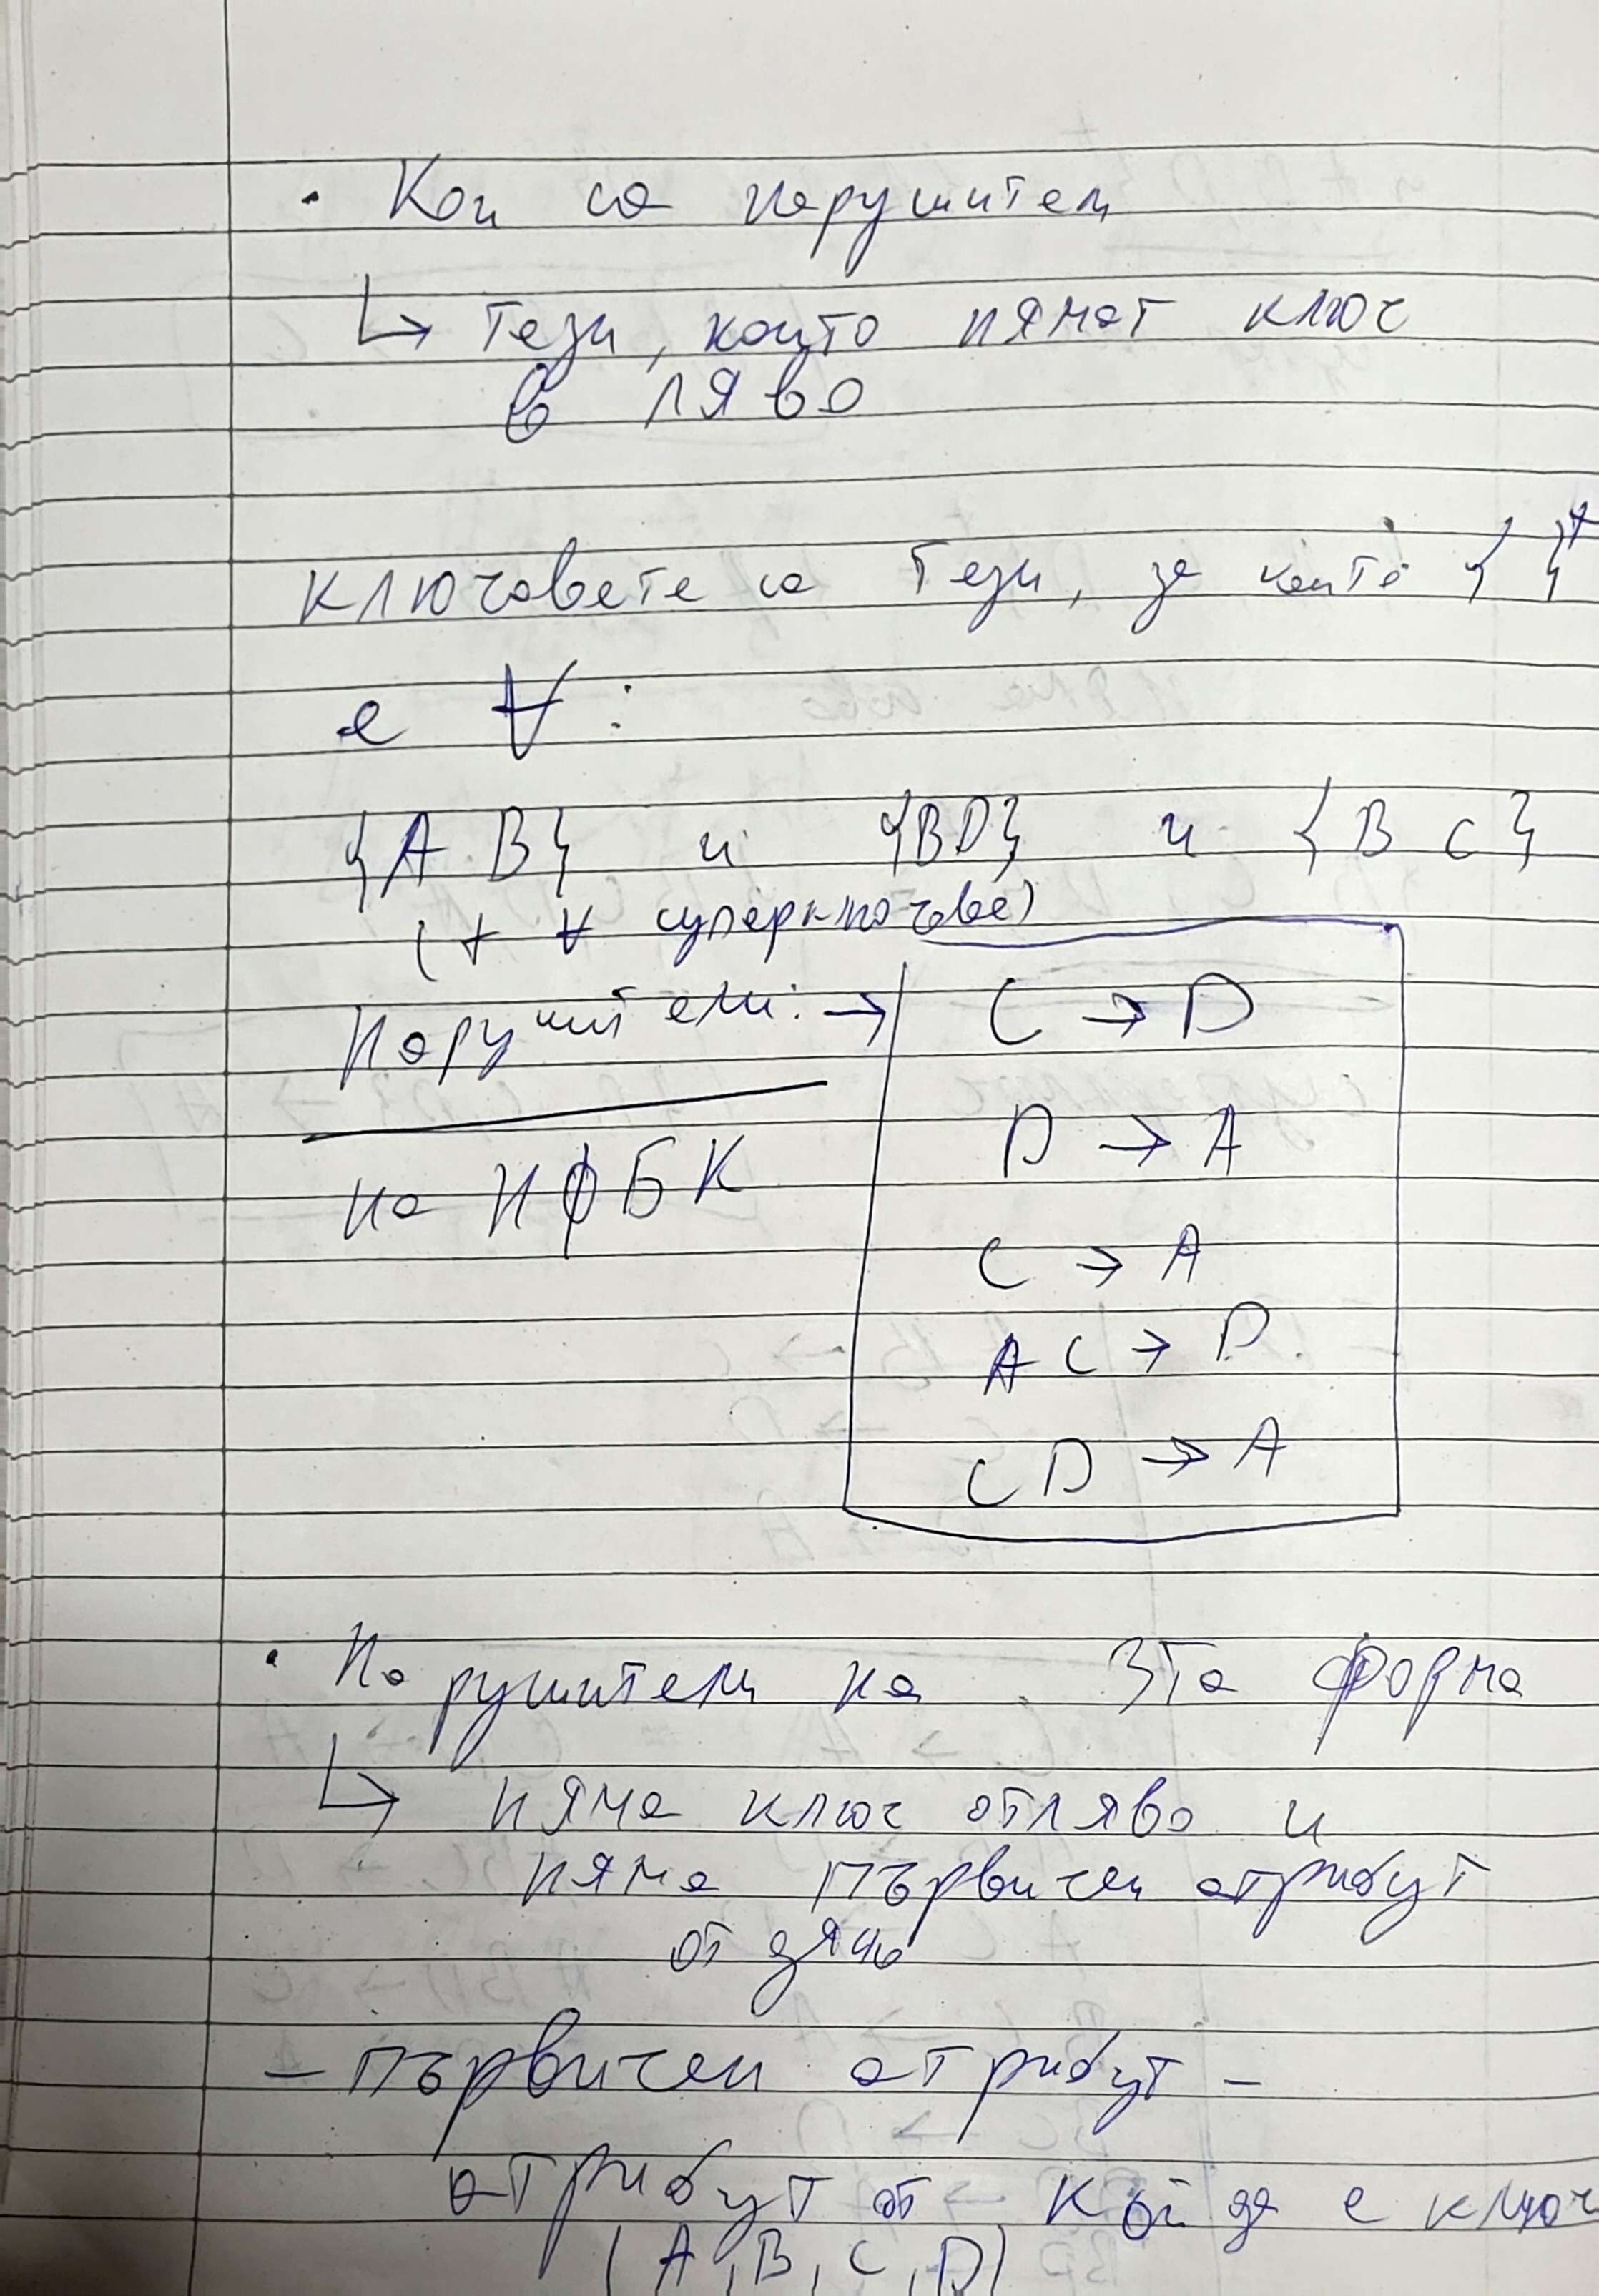 · Кои са нарушители
↳ тези, които нямат ключ
в ляво
ключовете са тези, за които { }⁺
е ∀:
{A B} и {BD} и {B C}
(+ ∀ суперключове)
Нарушители: → C → D
D → A
на НФБК
C → A
AC → D
CD → A
· Нарушители на 3та форма
↳ няма ключ отляво и
няма първичен атрибут
от дясно
– първичен атрибут –
атрибут от кой да е ключ
(A, B, C, D)